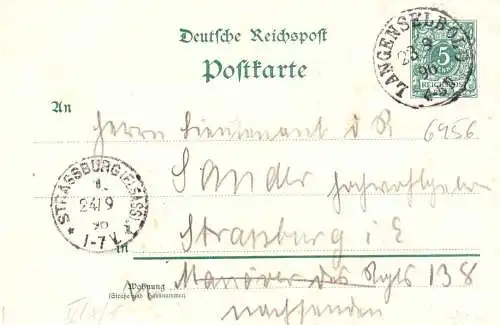 Deutsche Reichspost
Postkarte
LANGENSELBOLD
23 9
90
4-5N
5
REICHSPOST
An
Herrn Lieutenant d R
6956
Sander Hochwohlgeboren
STRASSBURG (ELSASS)
24/9
90
1-7V
Strassburg i E
in
Manöver des Rgts 138
Wohnung
(Straße und Hausnummer)
nachsenden